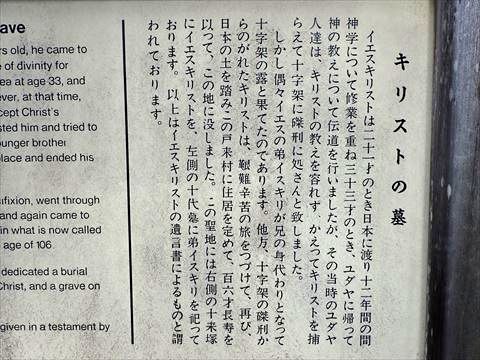 キリストの墓
イエスキリストは二十一才のとき日本に渡り十二年間の間
神学について修業を重ね三十三才のとき、ユダヤに帰って
神の教えについて伝道を行いましたが、その当時のユダヤ
人達は、キリストの教えを容れず、かえってキリストを捕
らえて十字架に磔刑に処さんと致しました。
しかし偶々イエスの弟イスキリが兄の身代わりとなって
十字架の露と果てたのであります。他方、十字架の磔刑か
らのがれたキリストは、艱難辛苦の旅をつづけて、再び、
日本の土を踏みこの戸来村に住居を定めて、百六才長寿を
以って、この地に没しました。この聖地には右側の十来塚
にイエスキリストを、左側の十代墓に弟イスキリを祀って
おります。以上はイエスキリストの遺言書によるものと謂
われております。
ave
rs old, he came to
e of divinity for
ea at age 33, and
ever, at that time,
cept Christ's
sted him and tried to
ounger brother
place and ended his
sifixion, went through
and again came to
in what is now called
age of 106.
dedicated a burial
Christ, and a grave on
given in a testament by